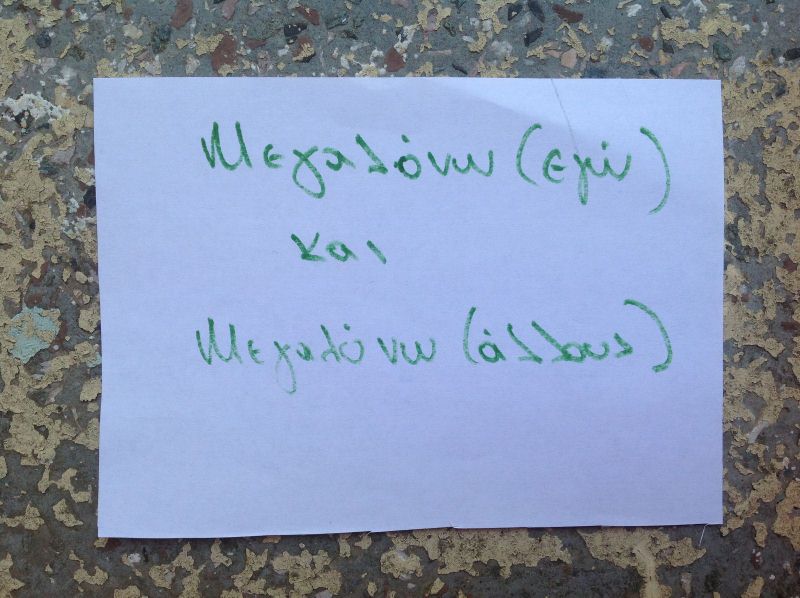 Μεγαλόνω (εγώ)
και
Μεγαλόνω (άλλους)